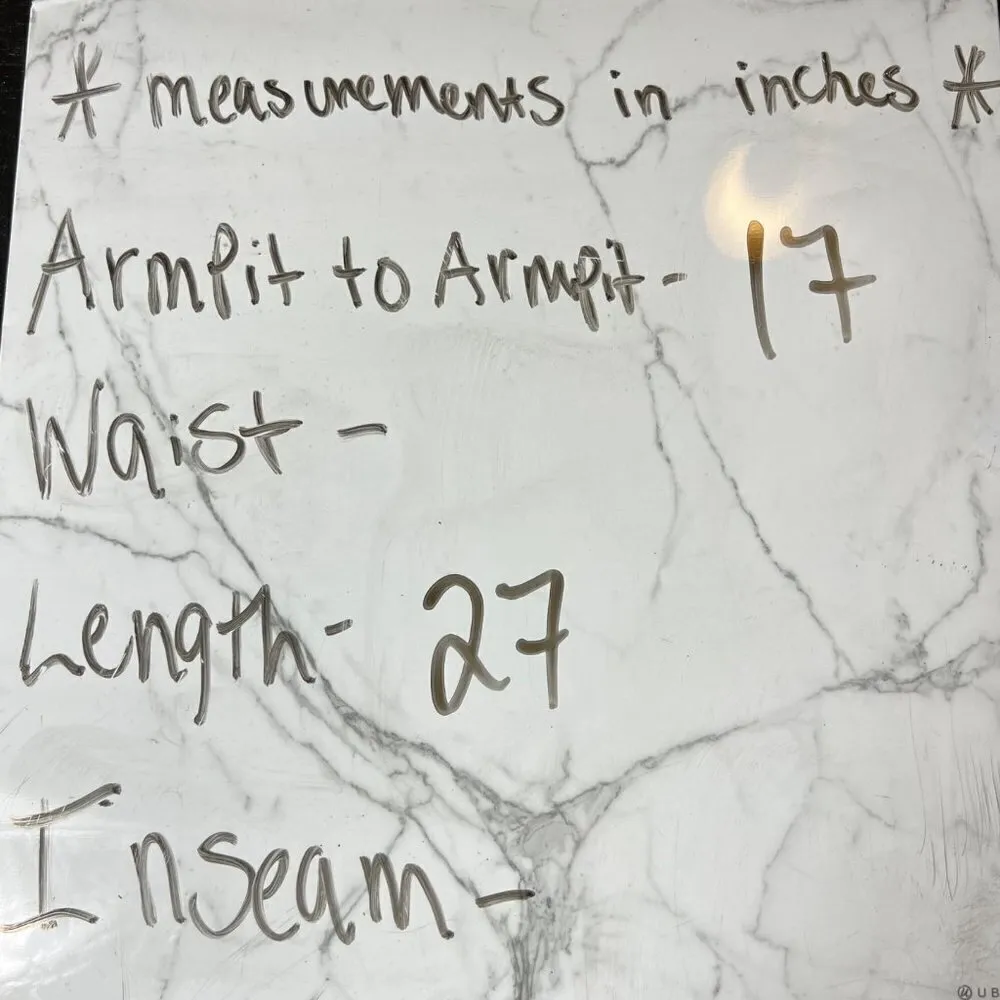 * measurements in inches *
Armpit to Armpit - 17
Waist -
Length - 27
Inseam -
UB